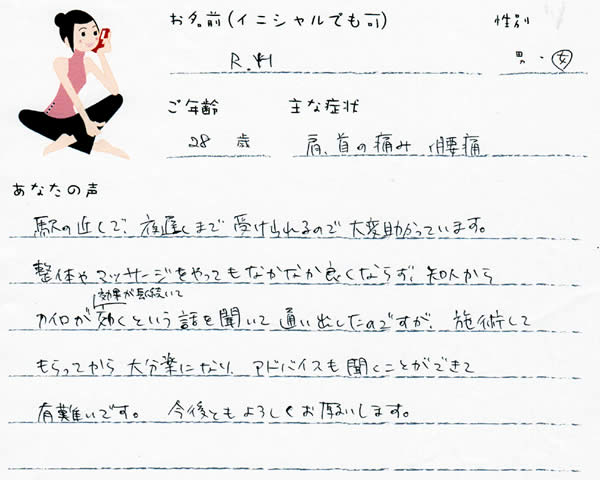 お名前(イニシャルでも可) 性別
R. H 男・女
ご年齢 主な症状
28 歳 肩、首の痛み 腰痛
あなたの声
駅の近くで、夜遅くまで受けられるので大変助かっています。
整体やマッサージをやってもなかなか良くならず、知人から
効果が長続いて
カイロが効くという話を聞いて通い出したのですが、施術して
もらってから大分楽になり、アドバイスも聞くことができて
有難いです。 今後ともよろしくお願いします。